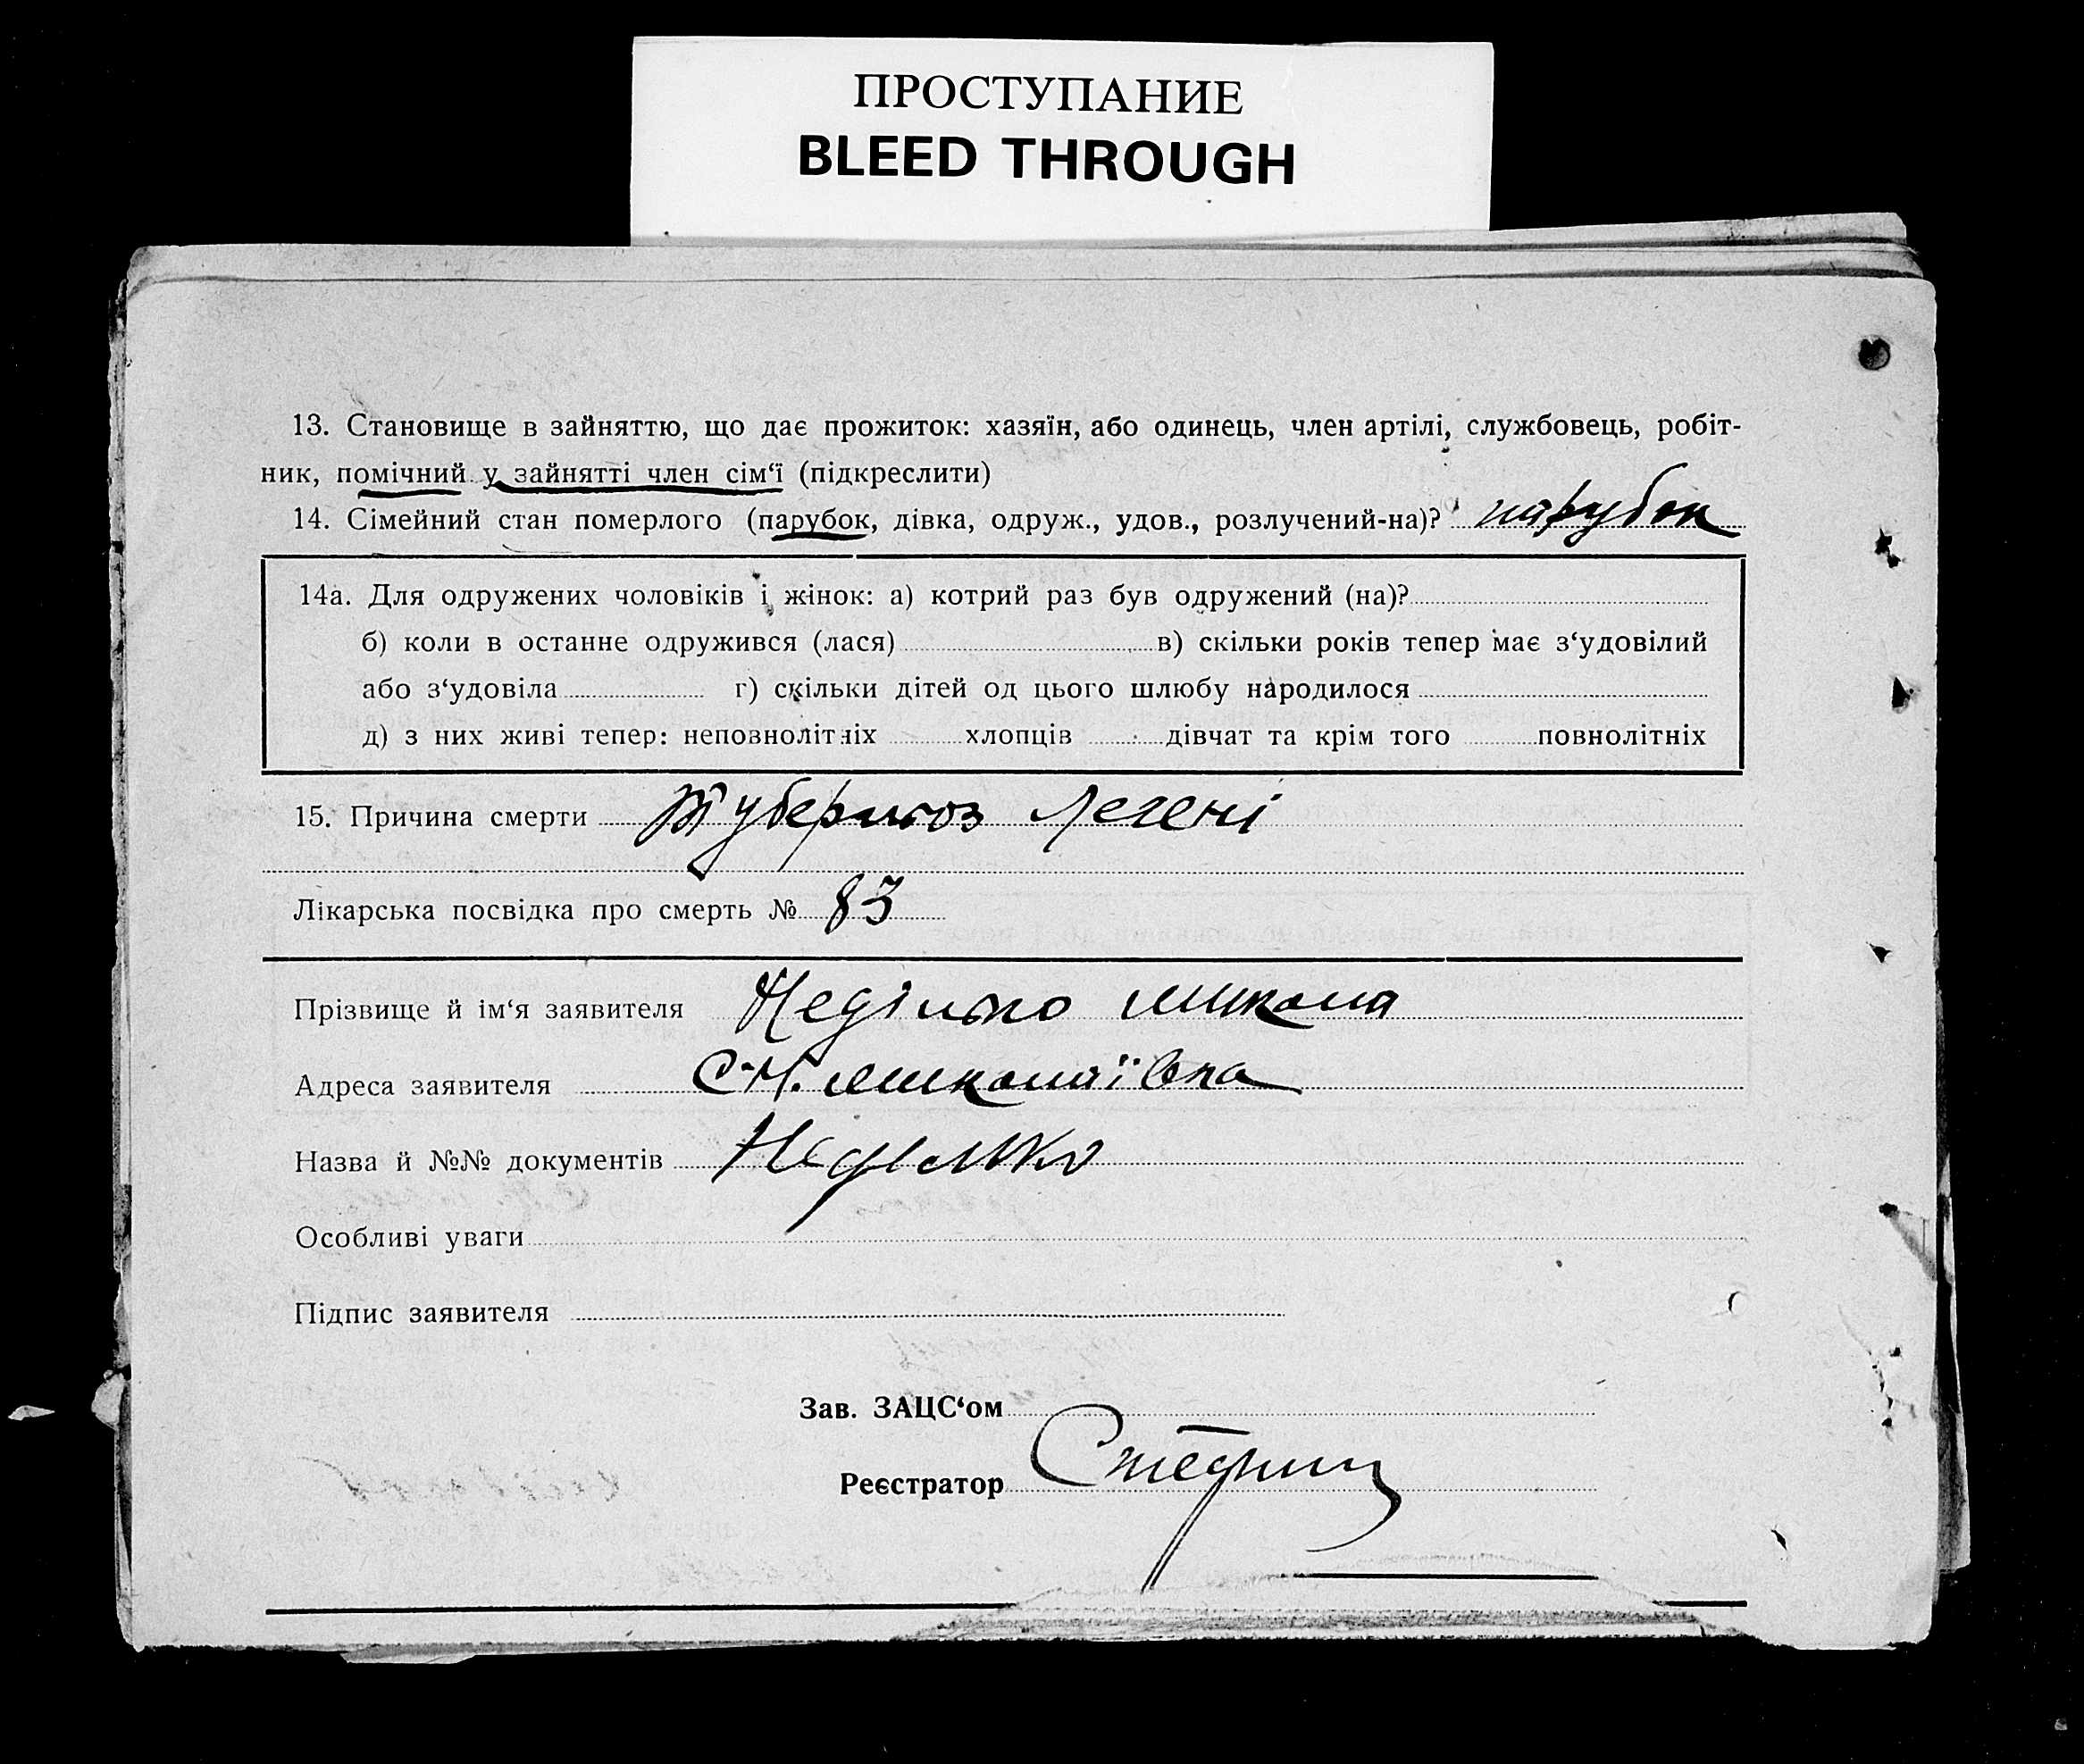 ПРОСТУПАНИЕ
BLEED THROUGH
13. Становище в зайняттю, що дає прожиток: хазяїн, або одинець, член артілі, службовець, робіт-
ник, помічний у зайнятті член сім‘ї (підкреслити)
14. Сімейний стан померлого (парубок, дівка, одруж., удов., розлучений-на)? парубок
14а. Для одружених чоловіків і жінок: а) котрий раз був одружений (на)?
б) коли в останне одружився (лася) в) скільки років тепер має з‘удовілий
або з‘удовіла г) скільки дітей од цього шлюбу народилося
д) з них живі тепер: неповнолітніх хлопців дівчат та крім того повнолітніх
15. Причина смерти Туберкльоз Легені
Лікарська посвідка про смерть № 83
Прізвище й ім‘я заявителя Неділько Микола
Адреса заявителя С-Н. Миколаївка
Назва й №№ документів Неділько
Особливі уваги
Підпис заявителя
Зав. ЗАЦС‘ом
Реєстратор